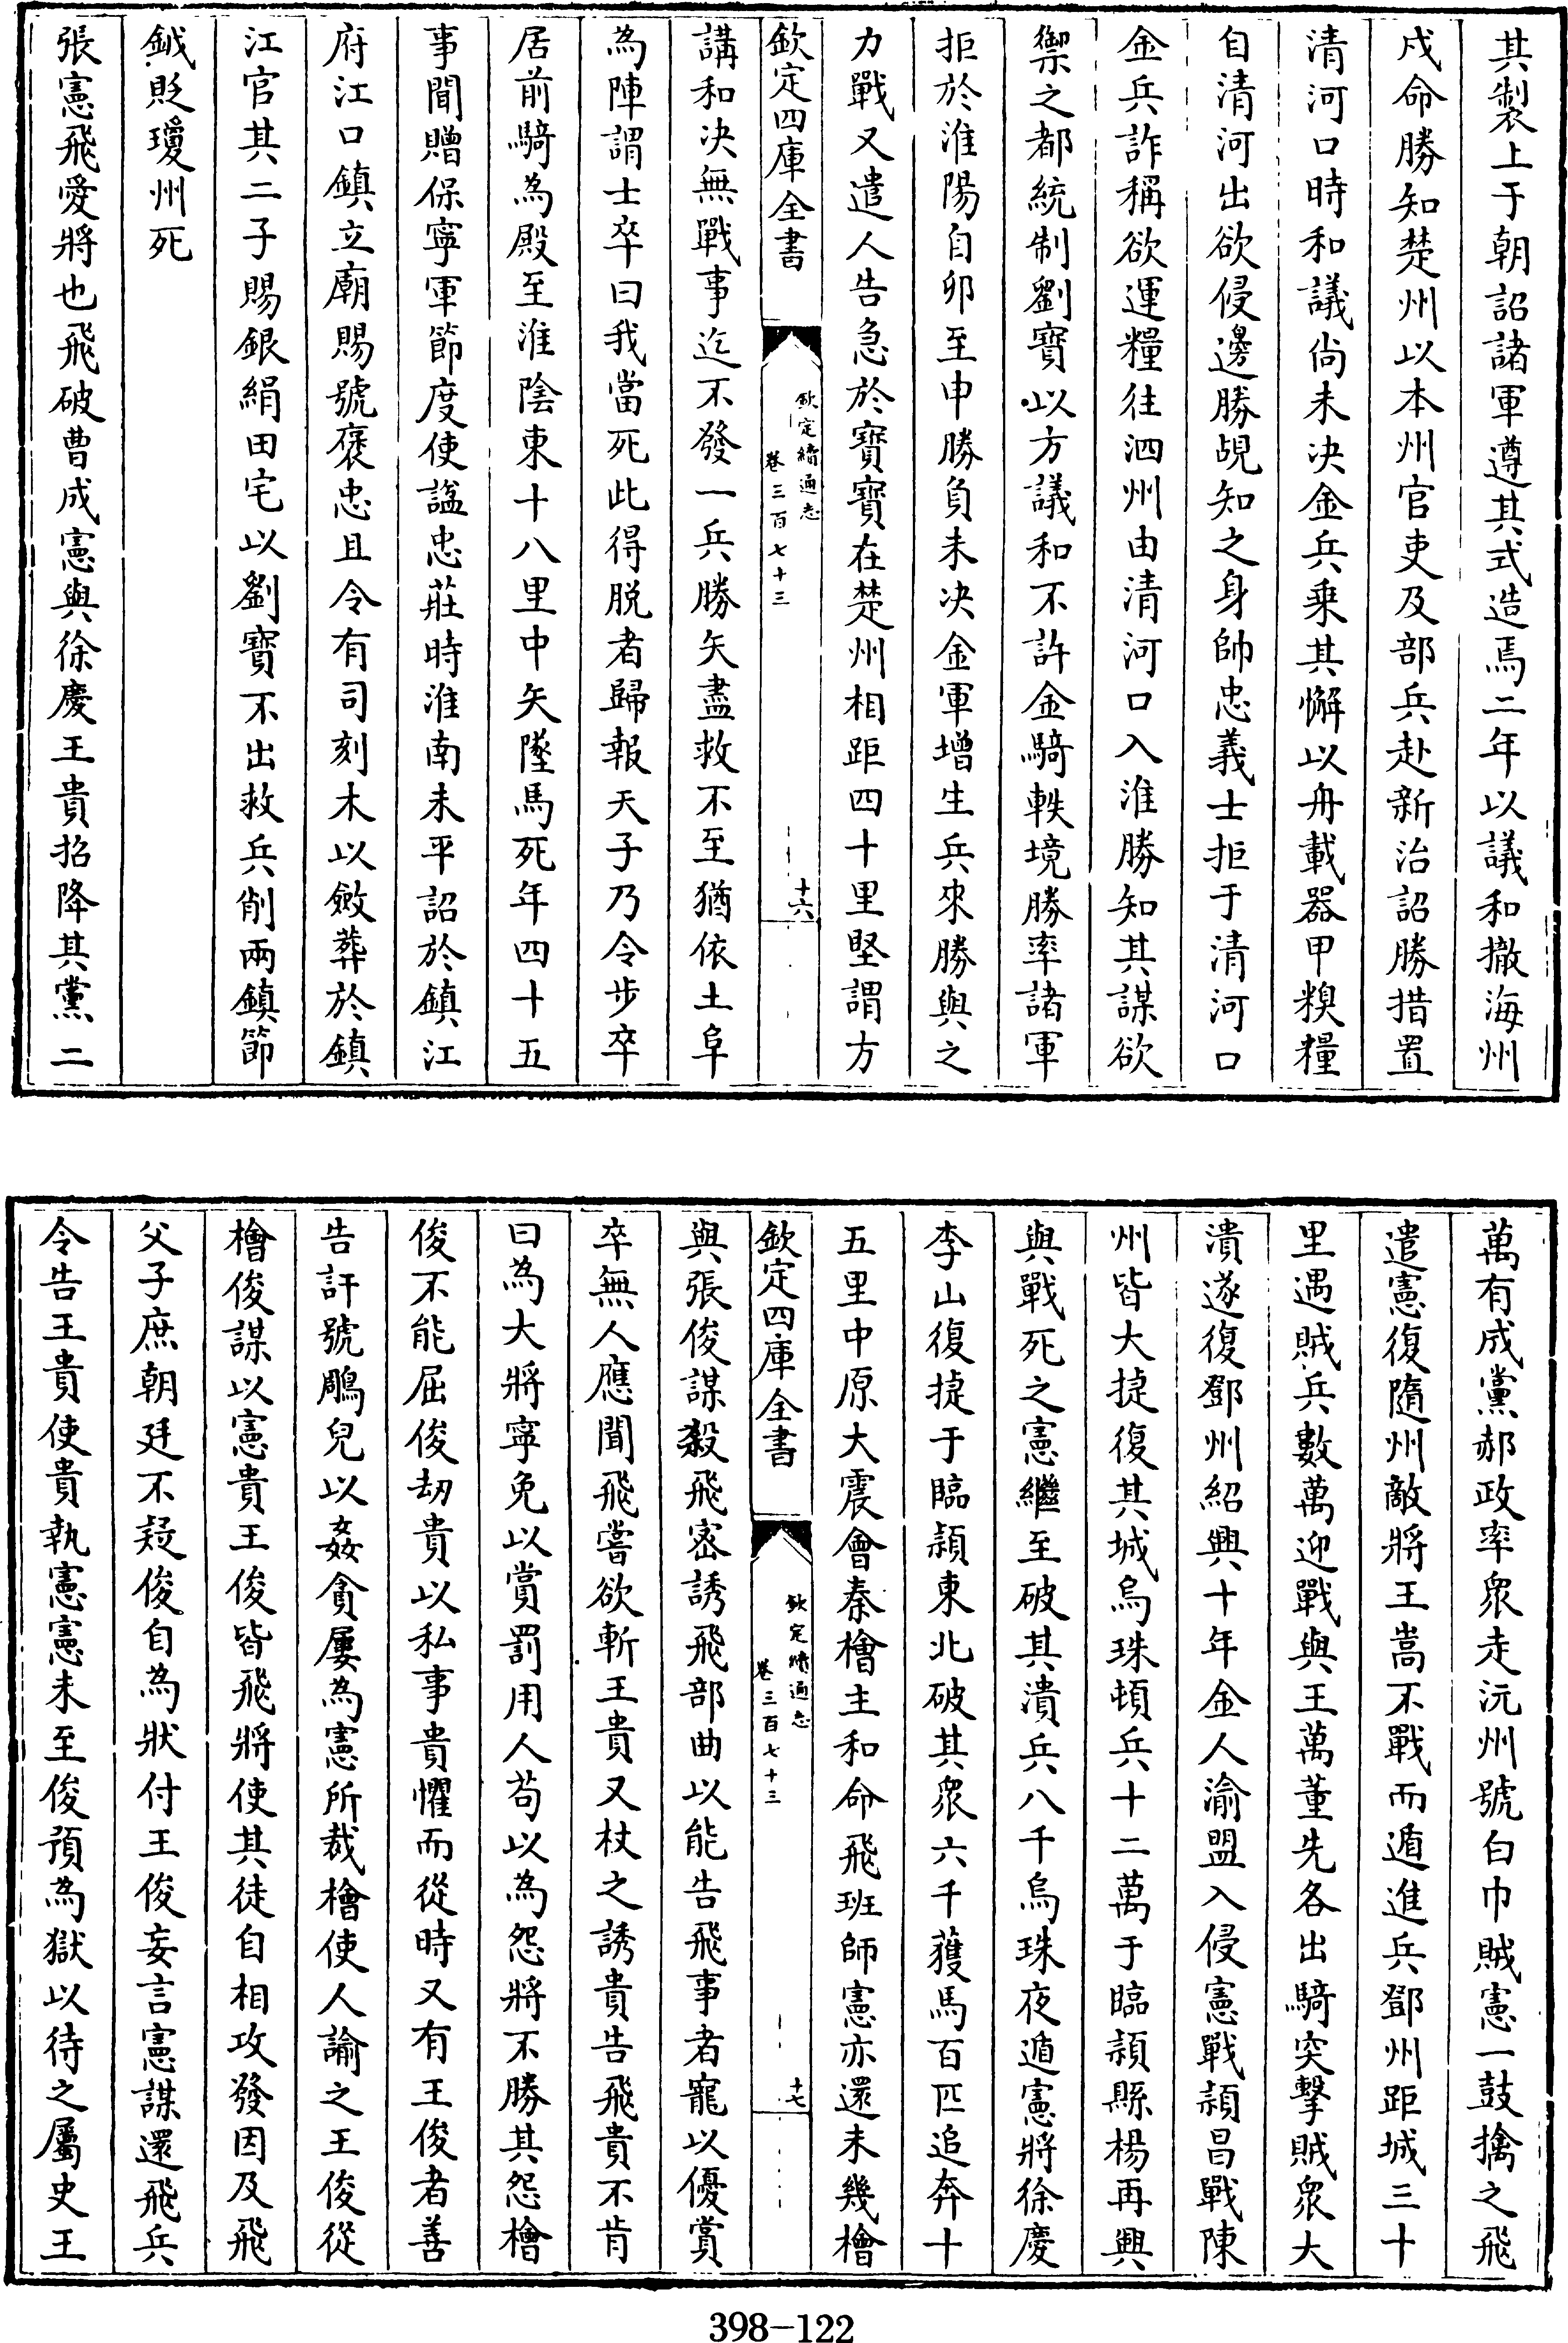 其製上于朝詔諸軍遵其式造焉二年以議和撤海州
戍命勝知楚州以本州官吏及部兵赴新治詔勝措置
清河口時和議尚未决金兵乗其懈以舟載器甲糗糧
自清河出欲侵邊勝覘知之身帥忠義士拒于清河口
金兵詐稱欲運糧往泗州由清河口入淮勝知其謀欲
禦之都統制劉寶以方議和不許金騎軼境勝率諸軍
拒於淮陽自卯至申勝負未决金軍增生兵來勝與之
力戰又遣人告急於寶寶在楚州相距四十里堅謂方
欽定四庫全書
欽定續通志
卷三百七十三
十六
講和决無戰事迄不發一兵勝矢盡救不至猶依土阜
為陣謂士卒曰我當死此得脱者歸報天子乃令步卒
居前騎為殿至淮陰東十八里中矢墜馬死年四十五
事聞贈保寧軍節度使諡忠莊時淮南未平詔於鎮江
府江口鎮立廟賜號褒忠且令有司刻木以斂葬於鎮
江官其二子賜銀絹田宅以劉寶不出救兵削兩鎮節
鉞貶瓊州死
張憲飛愛將也飛破曹成憲與徐慶王貴招降其黨二
萬有成黨郝政率衆走沅州號白巾賊憲一鼓擒之飛
遣憲復隨州敵將王嵩不戰而遁進兵鄧州距城三十
里遇賊兵數萬迎戰與王萬董先各出騎突擊賊衆大
潰遂復鄧州紹興十年金人渝盟入侵憲戰潁昌戰陳
州皆大捷復其城烏珠頓兵十二萬于臨潁縣楊再興
與戰死之憲繼至破其潰兵八千烏珠夜遁憲將徐慶
李山復捷于臨潁東北破其衆六千獲馬百匹追奔十
五里中原大震會秦檜主和命飛班師憲亦還未幾檜
欽定四庫全書
欽定續通志
卷三百七十三
十七
與張俊謀殺飛密誘飛部曲以能告飛事者寵以優賞
卒無人應聞飛嘗欲斬王貴又杖之誘貴告飛貴不肯
曰為大將寧免以賞罰用人苟以為怨將不勝其怨檜
俊不能屈俊刼貴以私事貴懼而從時又有王俊者善
告訐號鵰兒以姦貪屢為憲所裁檜使人諭之王俊從
檜俊謀以憲貴王俊皆飛將使其徒自相攻發因及飛
父子庶朝廷不疑俊自為狀付王俊妄言憲謀還飛兵
令告王貴使貴執憲憲未至俊預為獄以待之屬史王
398-122